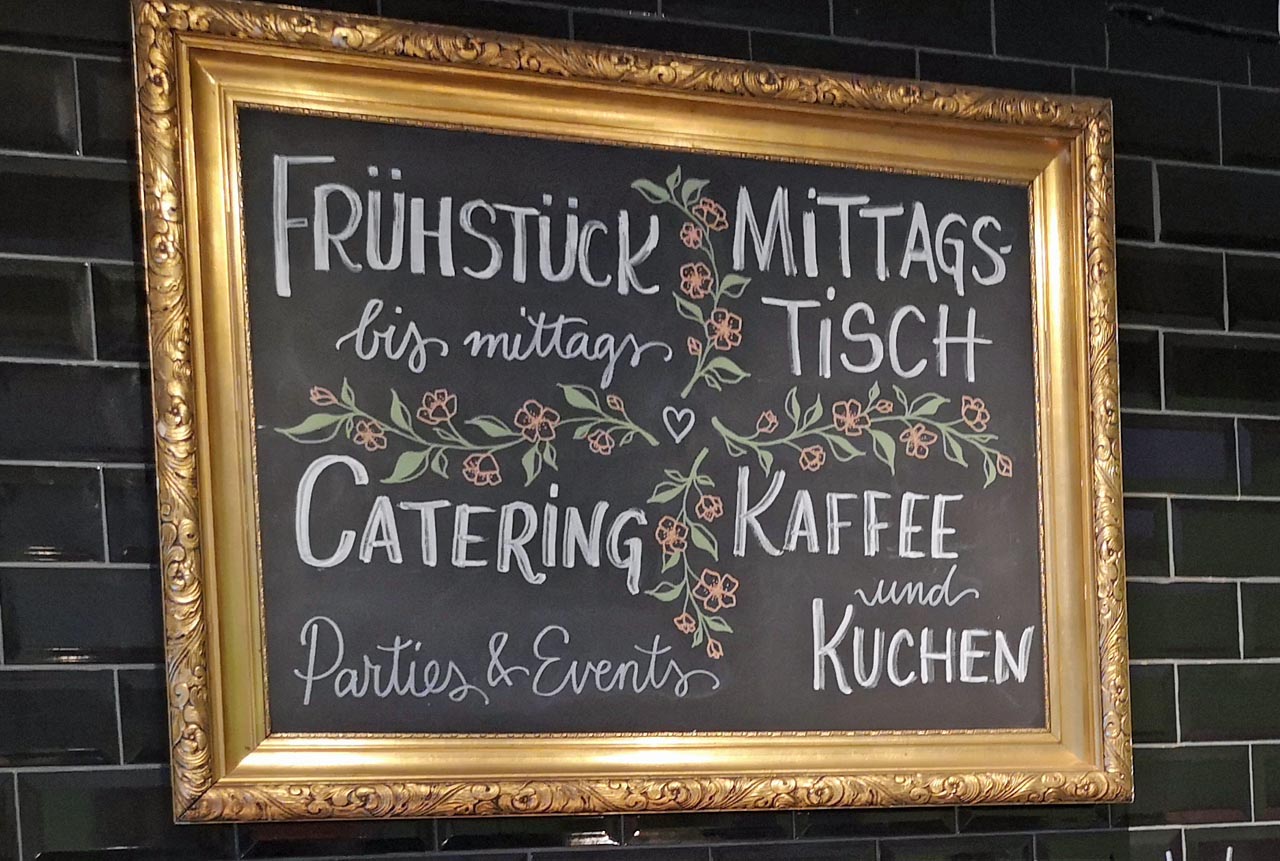 FRÜHSTÜCK
bis mittags
MITTAGS-
TISCH
CATERING
Parties & Events
KAFFEE
und
KUCHEN